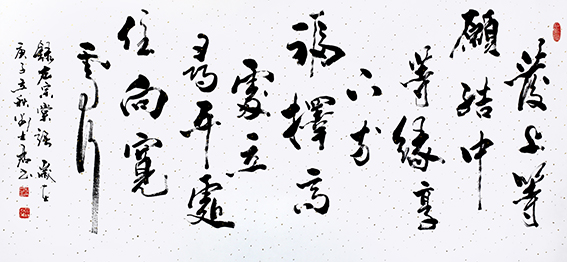 發上等
願結中
等緣享
下等
福擇高
處立
尋平處
住向寬
處行
錄左宗棠語 歲在
庚子 秋劉士 書